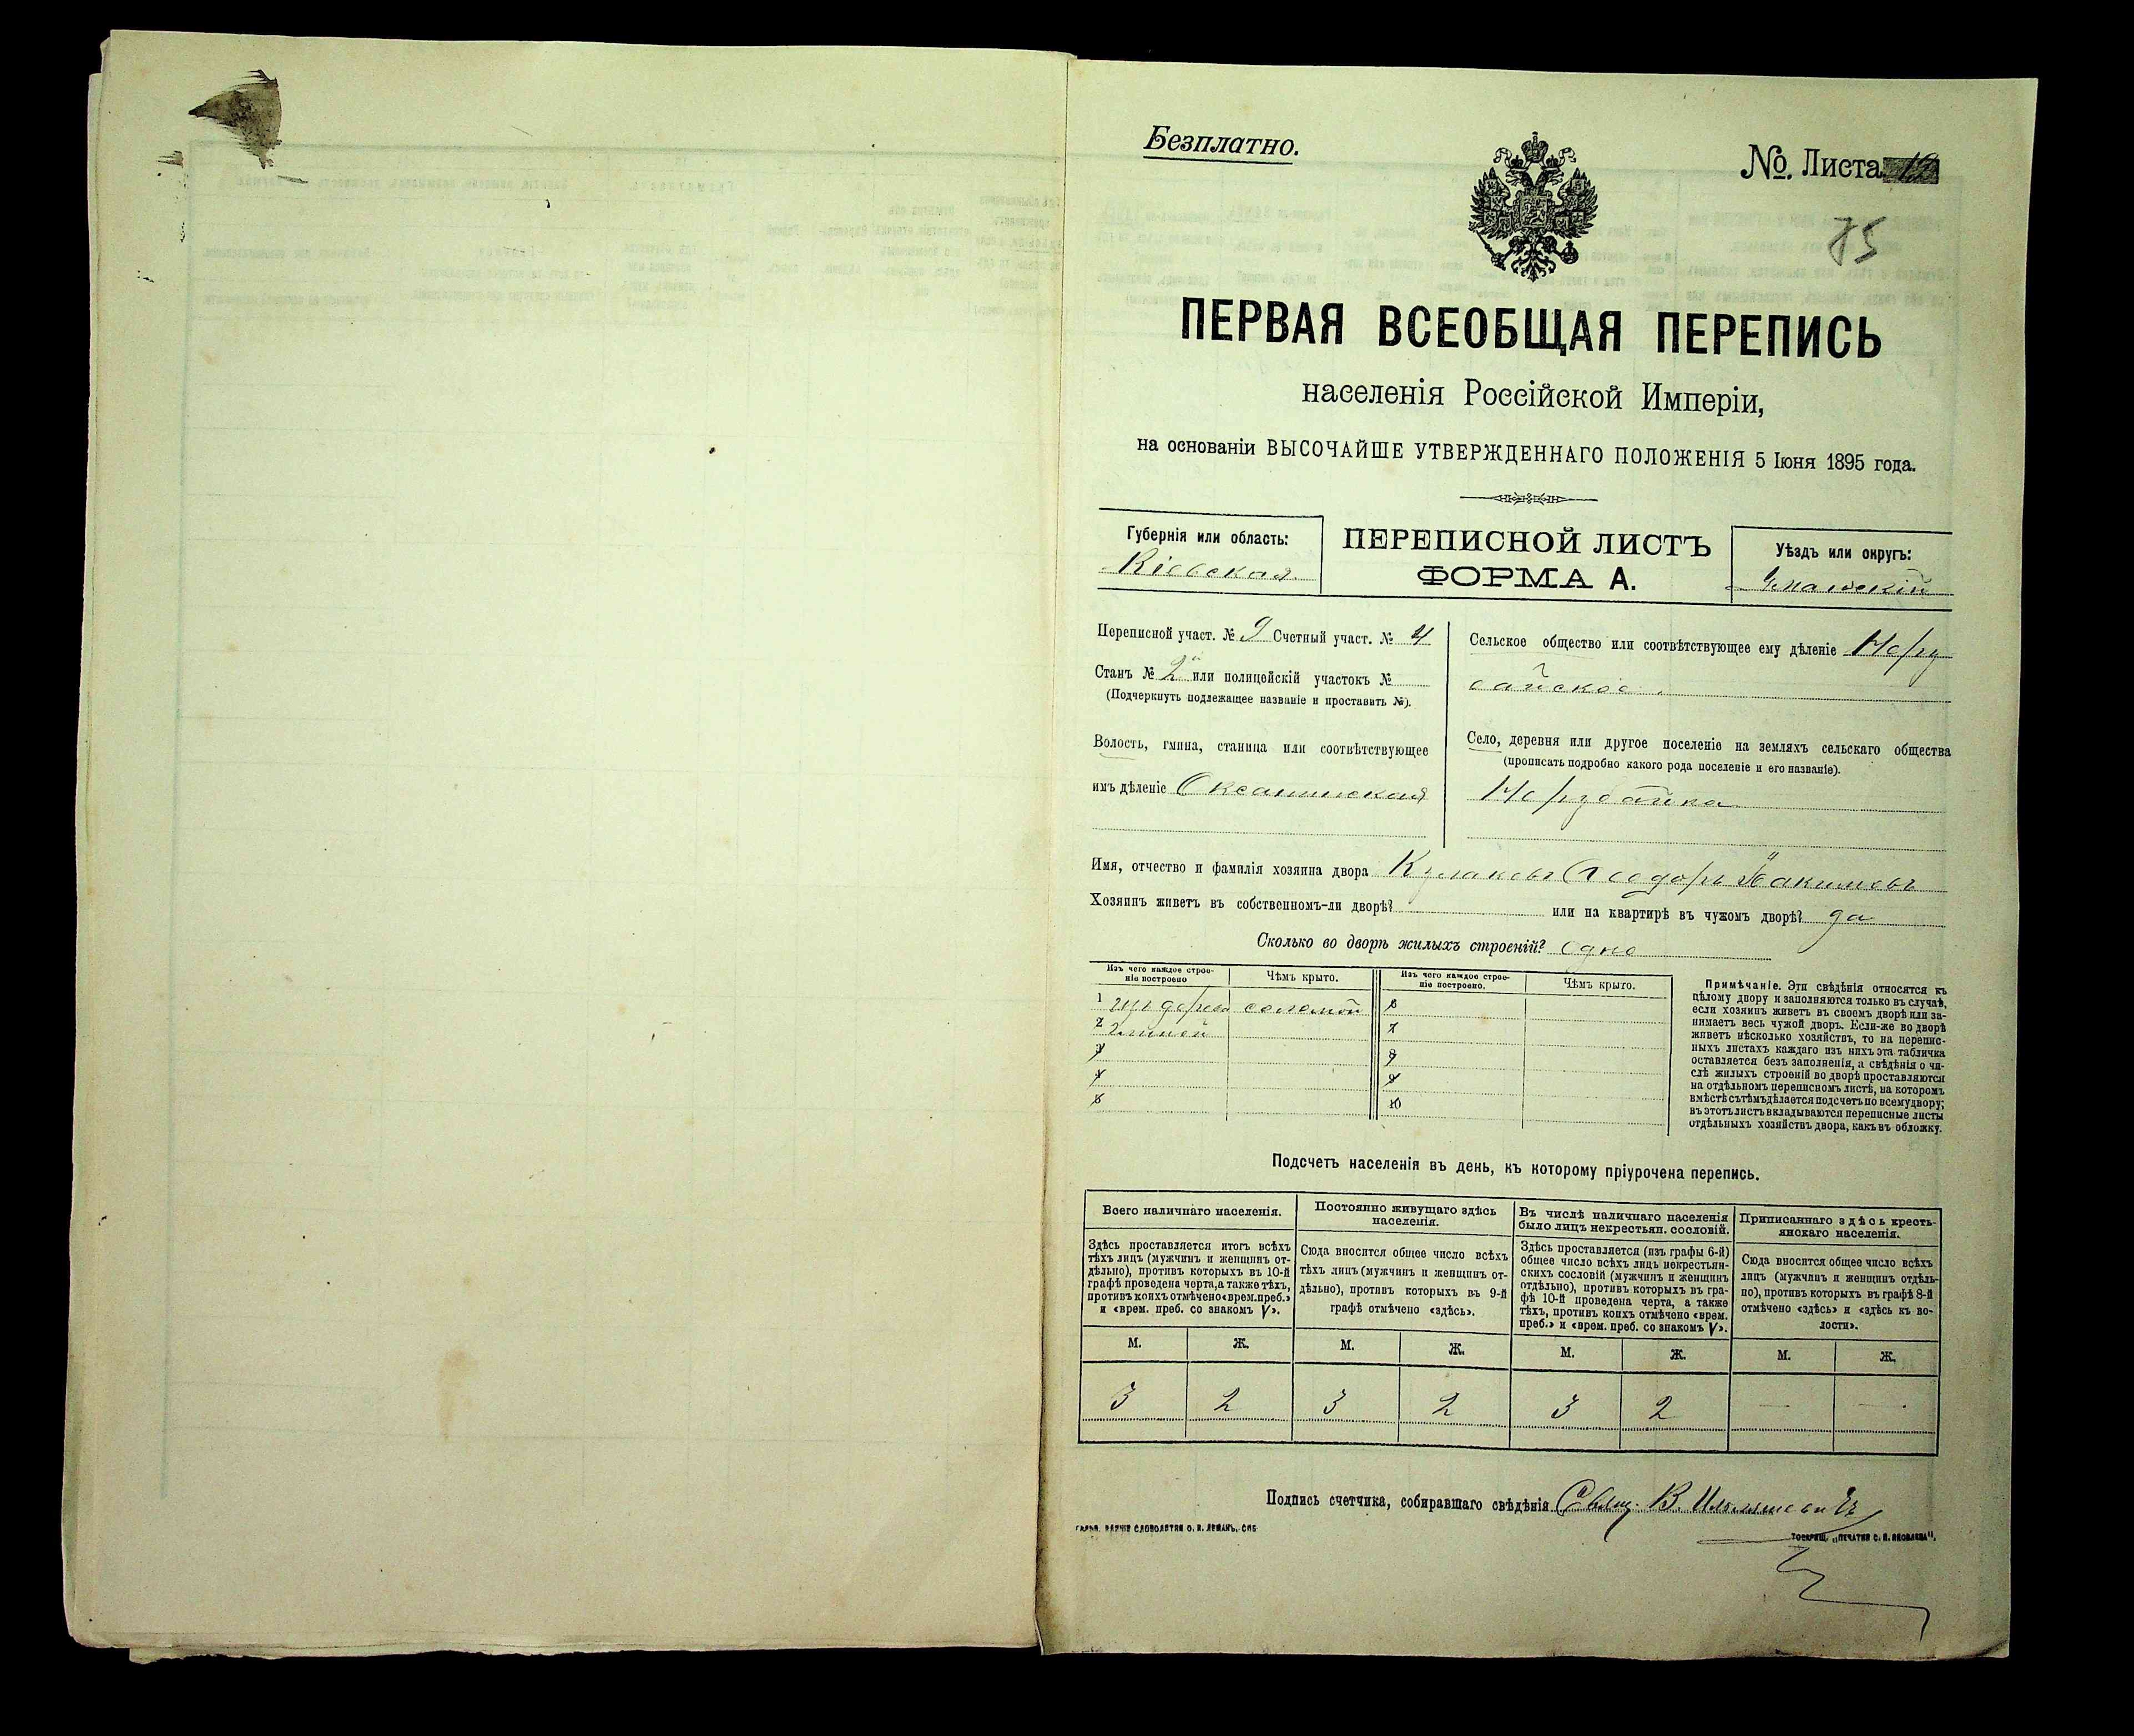 Безплатно.
№. Листа 12
75
ПЕРВАЯ ВСЕОБЩАЯ ПЕРЕПИСЬ
населенія Россійской Имперіи,
на основаніи ВЫСОЧАЙШЕ УТВЕРЖДЕННАГО ПОЛОЖЕНІЯ 5 Іюня 1895 года.
Губернія или область:
Кіевская
ПЕРЕПИСНОЙ ЛИСТЪ
ФОРМА А.
Уѣздъ или округъ:
Уманскій
Переписной участ. № 9 Счетный участ. № 4
Станъ № 2 или полицейскій участокъ №
(Подчеркнуть подлежащее названіе и проставить №).
Волость, гмина, станица или соотвѣтствующее
имъ дѣленіе Оксанинская
Сельское общество или соотвѣтствующее ему дѣленіе
Село, деревня или другое поселеніе на земляхъ сельскаго общества
(прописать подробно какого рода поселеніе и его названіе).
Имя, отчество и фамилія хозяина двора Ѳеодоръ Іакимовъ
Хозяинъ живетъ въ собственномъ-ли дворѣ? или на квартирѣ въ чужомъ дворѣ? да
Сколько во дворѣ жилыхъ строеній? одно
Изъ чего каждое строе-
ніе построено
Чѣмъ крыто.
Изъ чего каждое строе-
ніе построено.
Чѣмъ крыто.
1 изъ дерева соломой 6
2 глиной 7
3 8
4 9
5 10
Примѣчаніе. Эти свѣдѣнія относятся къ
цѣлому двору и заполняются только въ случаѣ,
если хозяинъ живетъ въ своемъ дворѣ или за-
нимаетъ весь чужой дворъ. Если-же во дворѣ
живетъ нѣсколько хозяйствъ, то на перепис-
ныхъ листахъ каждаго изъ нихъ эта табличка
оставляется безъ заполненія, а свѣдѣнія о чи-
слѣ жилыхъ строеній во дворѣ проставляются
на отдѣльномъ переписномъ листѣ, на которомъ
вмѣстѣ съ тѣмъ дѣлается подсчетъ по всему двору;
въ этотъ листъ вкладываются переписные листы
отдѣльныхъ хозяйствъ двора, какъ въ обложку.
Подсчетъ населенія въ день, къ которому пріурочена перепись.
Всего наличнаго населенія.
Здѣсь проставляется итогъ всѣхъ
тѣхъ лицъ (мужчинъ и женщинъ от-
дѣльно), противъ которыхъ въ 10-й
графѣ проведена черта, а также тѣхъ,
противъ коихъ отмѣчено «врем. преб.»
и «врем. преб. со знакомъ V».
Постоянно живущаго здѣсь
населенія.
Сюда вносится общее число всѣхъ
тѣхъ лицъ (мужчинъ и женщинъ от-
дѣльно), противъ которыхъ въ 9-й
графѣ отмѣчено «здѣсь».
Въ числѣ наличнаго населенія
было лицъ некрестьян. сословій.
Здѣсь проставляется (изъ графы 6-й)
общее число всѣхъ лицъ некрестьян-
скихъ сословій (мужчинъ и женщинъ
отдѣльно), противъ которыхъ въ гра-
фѣ 10-й проведена черта, а также
тѣхъ, противъ коихъ отмѣчено «врем.
преб.» и «врем. преб. со знакомъ V».
Приписаннаго здѣсь кресть-
янскаго населенія.
Сюда вносится общее число всѣхъ
лицъ (мужчинъ и женщинъ отдѣль-
но), противъ которыхъ въ графѣ 8-й
отмѣчено «здѣсь» и «здѣсь къ во-
лости».
М. Ж. М. Ж. М. Ж. М. Ж.
3 2 3 2 3 2 — —
Подпись счетчика, собиравшаго свѣдѣнія Свящ. В.
СЛОВОЛИТНИ О. И. ЛЕМАНЪ, СПБ
ТОВАРИЩ. „ПЕЧАТНЯ С. П. ЯКОВЛЕВА".